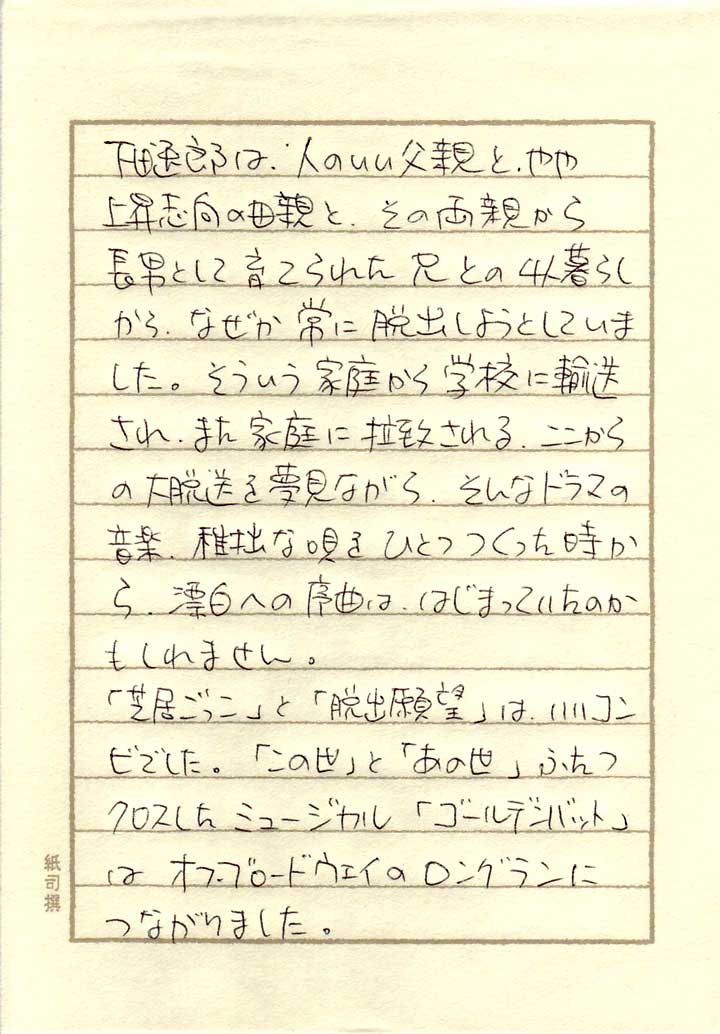 下田逸郎は、人のいい父親と、やや
上昇志向の母親と、その両親から
長男として育てられた兄との4人暮らし
から、なぜか常に脱出しようとしていま
した。そういう家庭から学校に輸送
され、また家庭に拉致される、ここから
の大脱送を夢見ながら、そんなドラマの
音楽、稚拙な唄をひとつつくった時か
ら、漂白への序曲は、はじまっていたのか
もしれません。
「芝居ごっこ」と「脱出願望」は、いいコン
ビでした。「この世」と「あの世」ふたつ
クロスしたミュージカル「ゴールデンバット」
は オフ・ブロードウェイのロングランに
つながりました。
紙司撰